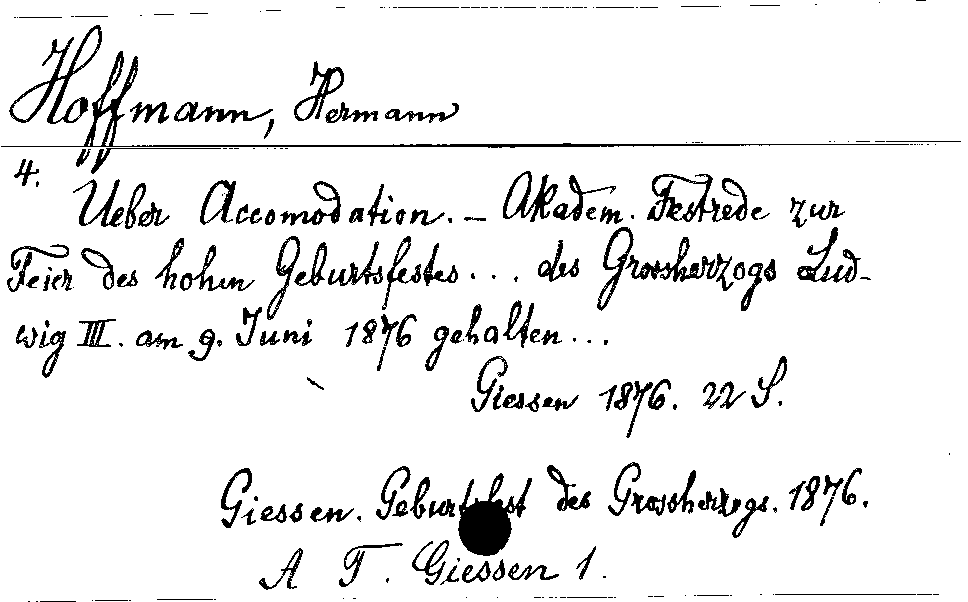 Hoffmann, Hermann
4.
Ueber Accomodation. – Akadem. Festrede zur
Feier des hohen Geburtsfestes... des Grossherzogs Lud-
wig III. am 9. Juni 1876 gehalten...
Giessen 1876. 22 S.
Giessen. Geburtsfest des Grossherzogs. 1876.
A T. Giessen 1.